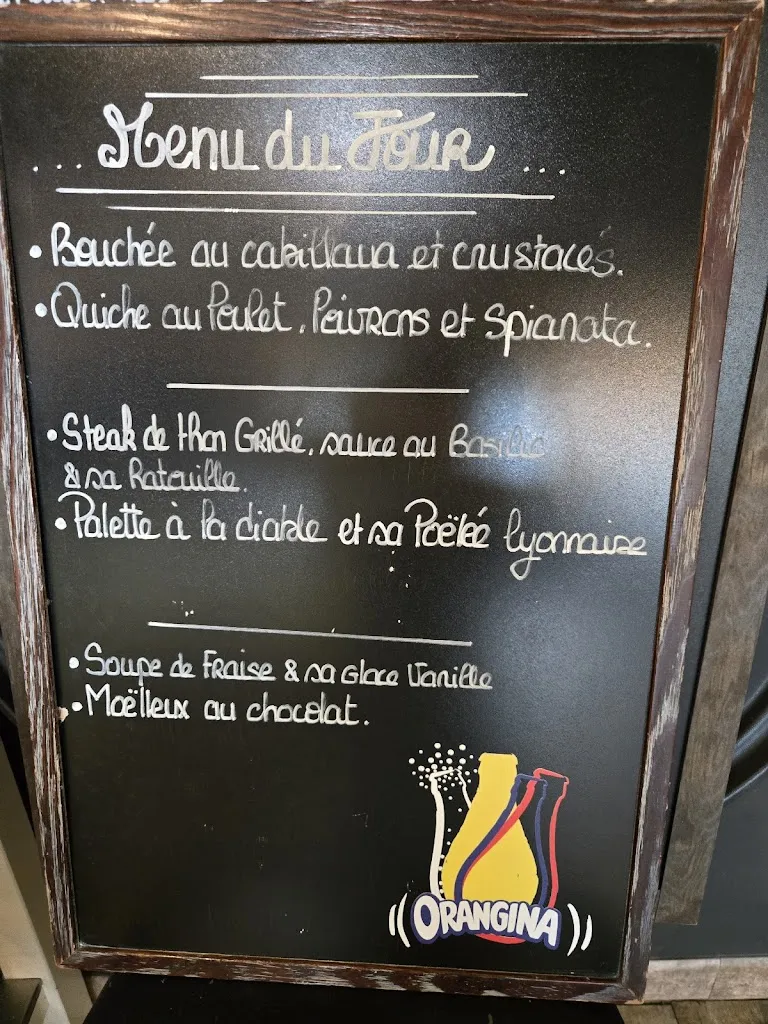 ... Menu du Jour ...
• Bouchée au cabillaud et crustacés.
• Quiche au Poulet, Poivrons et Spianata.
• Steak de thon Grillé, sauce au Basilic
& sa Ratouille.
• Palette à la diable et sa Poëlée lyonnaise
• Soupe de Fraise & sa Glace Vanille
• Moëlleux au chocolat.
ORANGINA